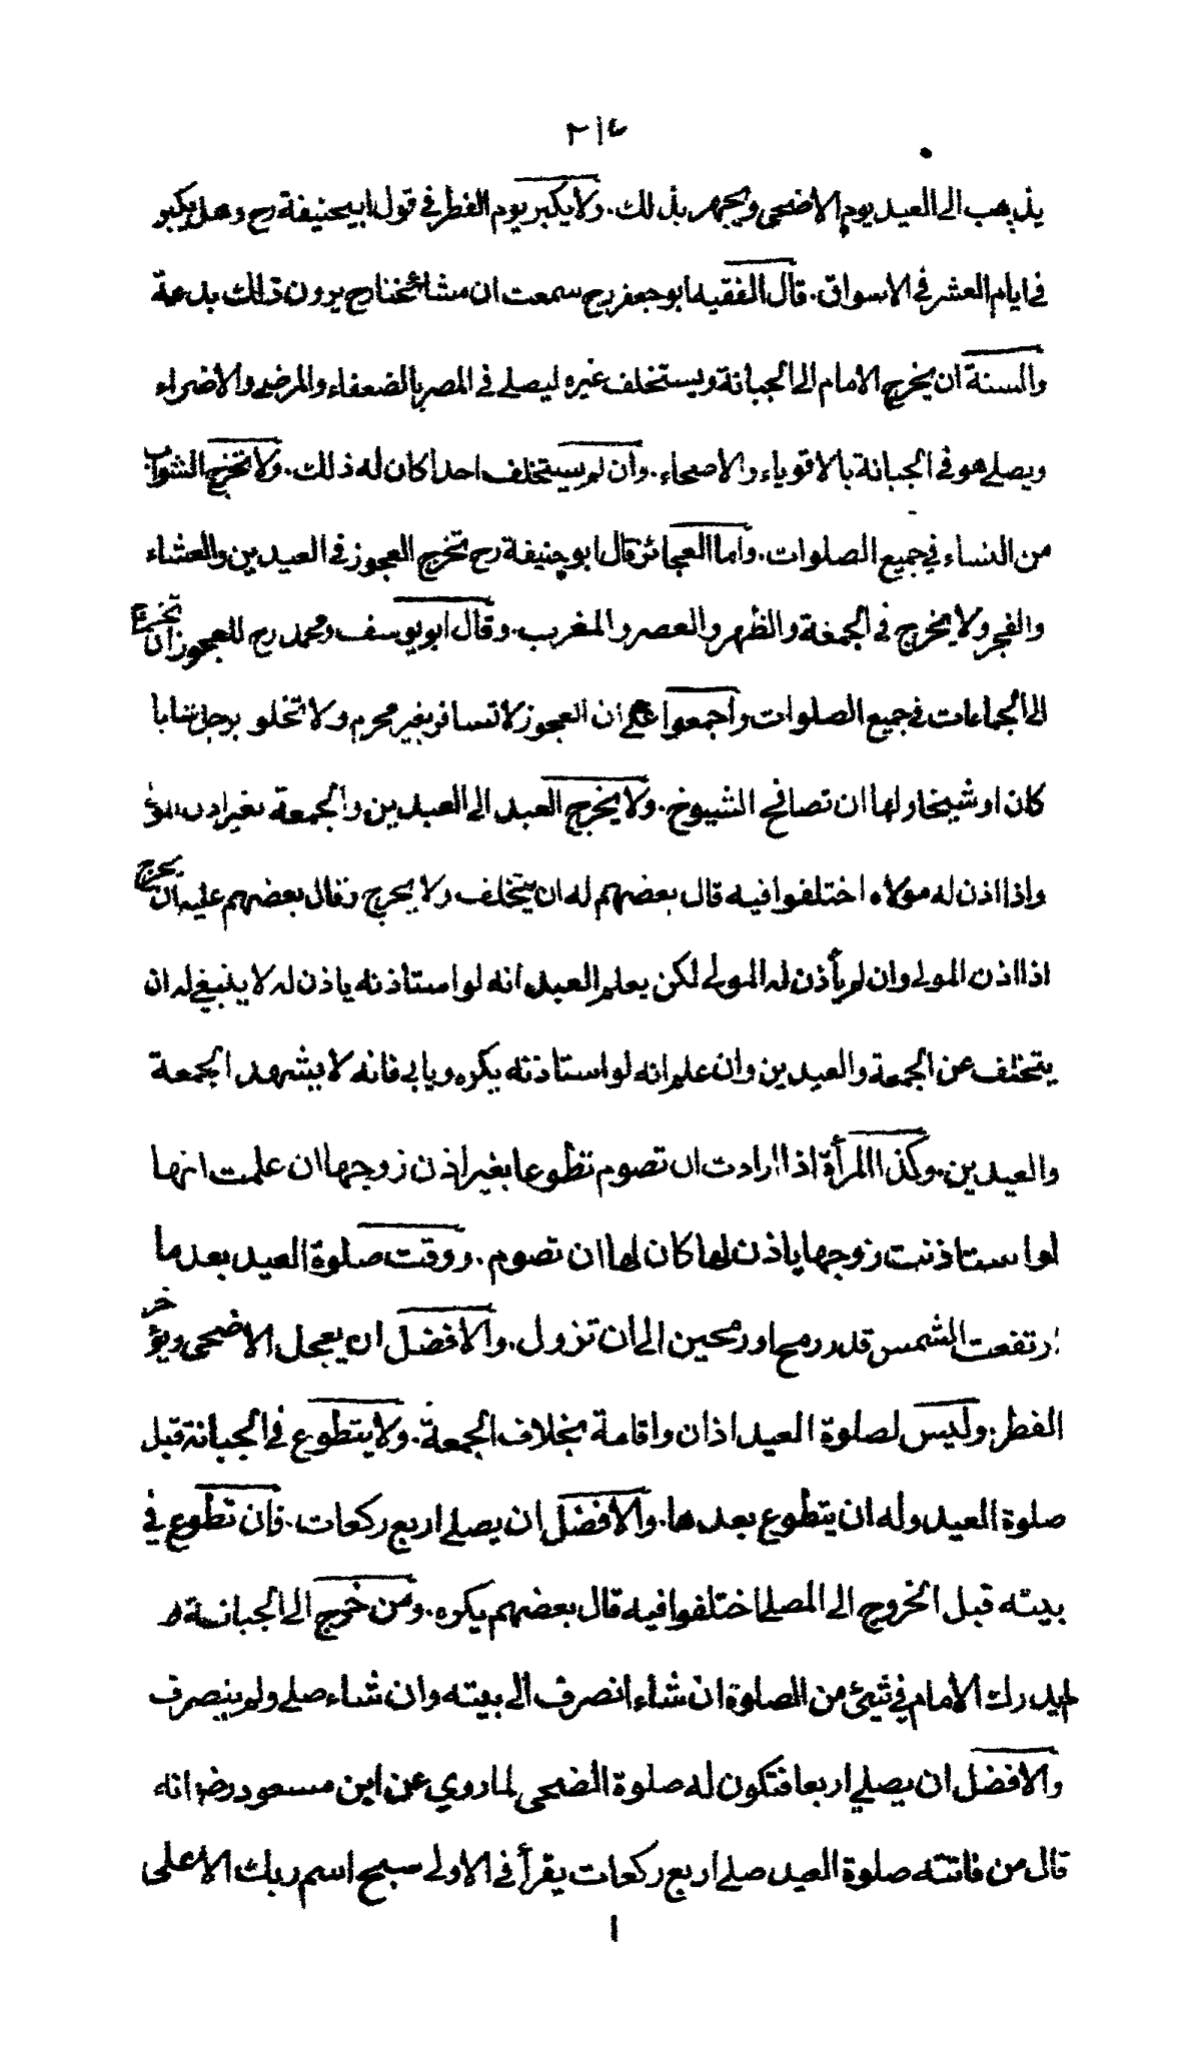 ٢١٤
يذهب الى العيد يوم الاضحى ويجهر بذلك. ولا يكبر يوم الفطر في قول ابيحنيفة رح وهل يكبر
في ايام العشر في الاسواق. قال الفقيه ابو جعفر رح سمعت ان مشائخنا رح يرون ذلك بدعة
والسنة ان يخرج الامام الى الجبانة ويستخلف غيره ليصلي في المصر بالضعفاء والمرضى والاضراء
ويصلي هو في الجبانة بالاقوياء والاصحاء. وان لم يستخلف احدا كان له ذلك. ولا تخرج الشواب
من النساء في جميع الصلوات. واما العجائز قال ابو حنيفة رح تخرج العجوز في العيدين والعشاء
والفجر ولا يخرج في الجمعة والظهر والعصر والمغرب. وقال ابو يوسف ومحمد رح للعجوز ان تخرج
الى الجماعات في جميع الصلوات واجمعوا على ان العجوز لا تسافر بغير محرم ولا تخلو برجل شابا
كان او شيخا ولها ان تصافح الشيوخ. ولا يخرج العبد الى العيدين والجمعة بغير اذن المولى
واذا اذن له مولاه اختلفوا فيه قال بعضهم له ان يتخلف ولا يخرج وقال بعضهم عليه ان يخرج
اذا اذن المولى وان لم يأذن له المولى لكن يعلم العبد انه لو استاذنه ياذن له لا ينبغي له ان
يتخلف عن الجمعة والعيدين وان علم انه لو استاذنه يكره ويابى فانه لا يشهد الجمعة
والعيدين. وكذا المرأة اذا ارادت ان تصوم تطوعا بغير اذن زوجها ان علمت انها
لو استاذنت زوجها ياذن لها كان لها ان تصوم. ووقت صلوة العيد بعد ما
ارتفعت الشمس قدر رمح او رمحين الى ان تزول. والافضل ان يعجل الاضحى ويؤخر
الفطر. وليس لصلوة العيد اذان واقامة بخلاف الجمعة. ولا يتطوع في الجبانة قبل
صلوة العيد وله ان يتطوع بعدها. والافضل ان يصلي اربع ركعات. فان تطوع في
بيته قبل الخروج الى المصلى اختلفوا فيه قال بعضهم يكره. ومن خرج الى الجبانة و
لم يدرك الامام في شيئ من الصلوة ان شاء انصرف الى بيته وان شاء صلى ولم ينصرف
والافضل ان يصلي اربعا فتكون له صلوة الضحى لما روي عن ابن مسعود رضه انه
قال من فاتته صلوة العيد صلى اربع ركعات يقرأ في الاولى سبح اسم ربك الاعلى
ا